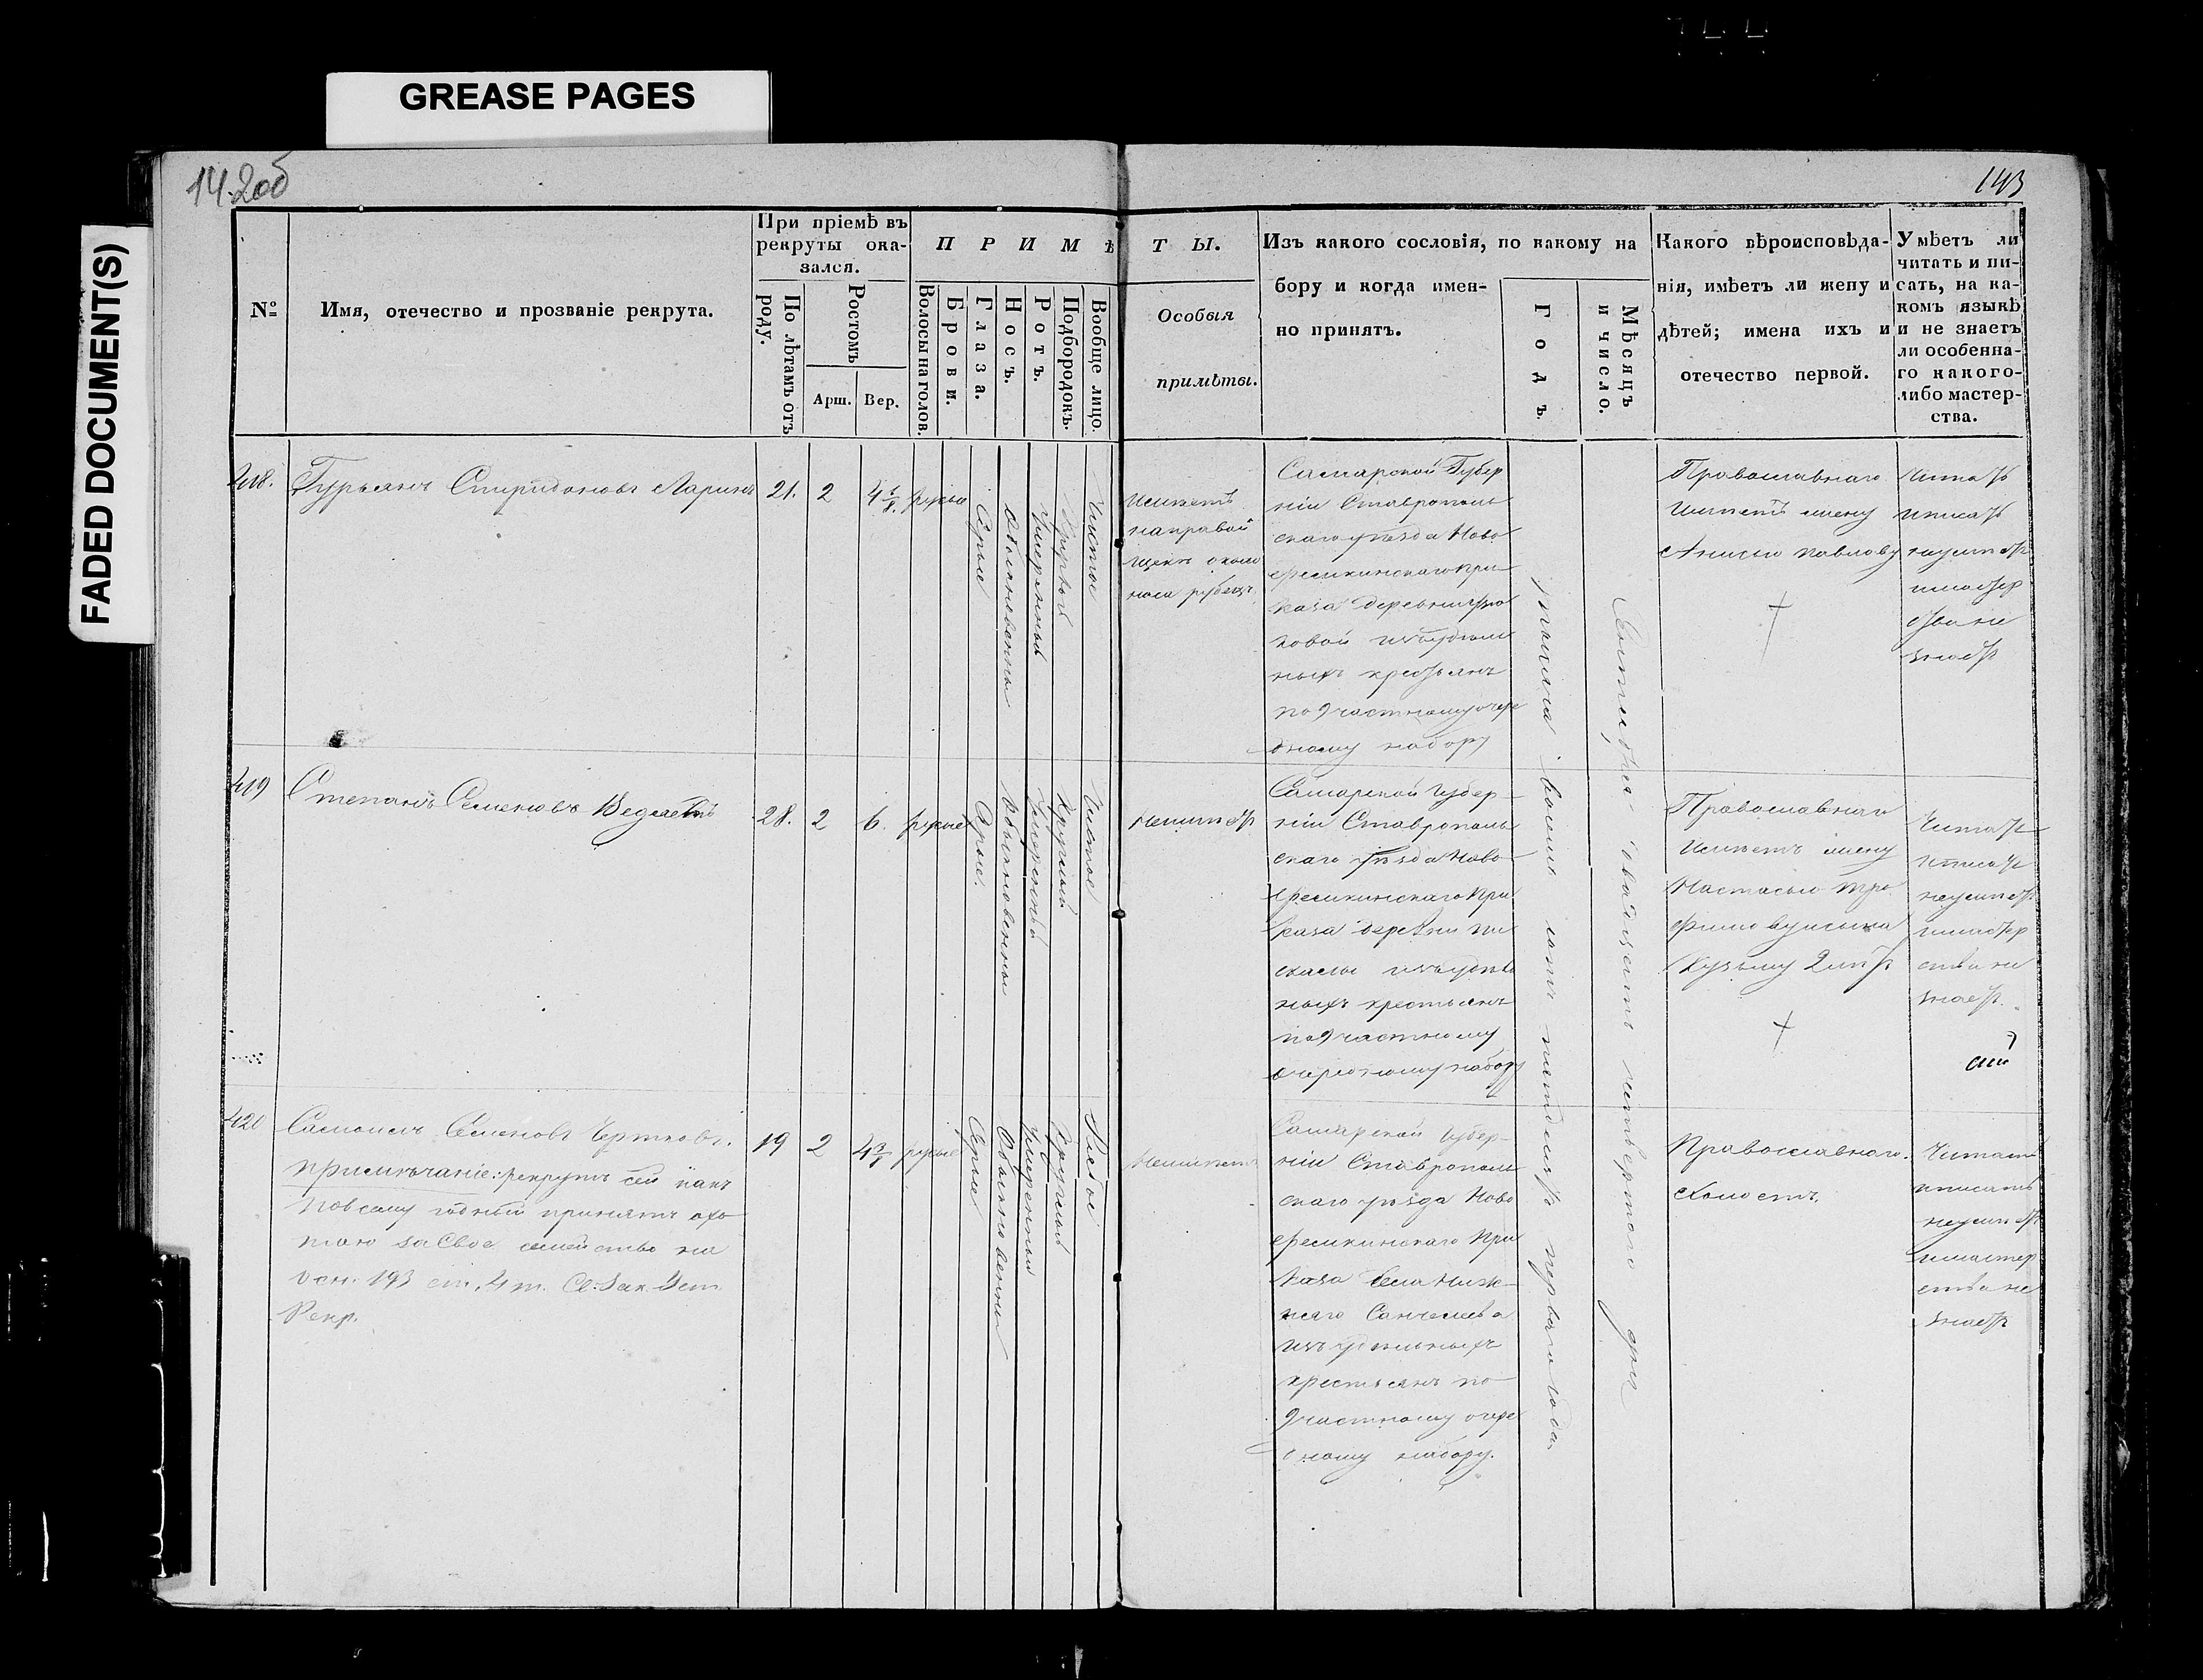 GREASE PAGES
FADED DOCUMENT(S)
142об
143
№
Имя, отечество и прозваніе рекрута.
При пріемѣ въ
рекруты ока-
зался.
По лѣтамъ отъ
роду.
Ростомъ
Арш.
Вер.
ПРИМѢТЫ.
Волосы на голов.
Брови.
Глаза.
Носъ.
Ротъ.
Подбородокъ.
Вообще лицо.
Особыя
примѣты.
Изъ какого сословія, по какому на
бору и когда имен-
но принятъ.
Годъ.
Мѣсяцъ
и число.
Какого вѣроисповѣда-
нія, имѣетъ ли жену и
дѣтей; имена ихъ и
отечество первой.
Умѣетъ ли
читать и пи-
сать, на ка-
комъ языкѣ
и не знаетъ
ли особенна-
го какого-
либо мастер-
ства.
418.
Гурьянъ Спиридоновъ Ларинъ
21.
2
4 1/8.
русые
Сѣрые
Обыкновенный
Умѣренный
Круглый
Чистое
Имѣетъ
на правой
щекѣ около
носа рубецъ
Самарской Губер
ніи Ставрополь
скаго уѣзда Ново
Фемикинскаго При
каза деревни
ныхъ крестьянъ
по 9 частному очере
дному набору
Православнаго
Имѣетъ жену
Анисью Павлову
Читать
и писать
неумѣетъ
и мастер
ства не
знаетъ
419
Степанъ Семеновъ
28.
2
6.
русые
Сѣрые.
Обыкновенный
Умѣренный
Круглый
Чистое
Неимѣетъ
Самарской губер-
ніи Ставрополь
скаго уѣзда Ново-
Фемикинскаго При
каза деревни Пи
скалы изъ удѣль
ныхъ крестьянъ
по 9 частному
очередному набору
Православнаго
Имѣетъ жену
Настасью Тро
фимову и сына
Кузьму 2 лѣтъ
Читать
и писать
неумѣетъ
и мастер
ства не
знаетъ.
420
Самойлъ Семеновъ Чертновъ.
Примѣчаніе: рекрутъ сей какъ
повсему годный принятъ охо
тою за свое семейство на
осн. 193 ст. 4 т. Св. Зак. Уст.
Рекр.
19
2
русые
Сѣрые
Обыкновенный
Умѣренный
Круглый
Рябое
Неимѣетъ
Самарской губер-
ніи Ставрополь
скаго уѣзда Ново
Фемикинскаго При
каза села Ниж-
няго Санчелеева
изъ удѣльныхъ
крестьянъ по
9 частному очере
дному набору.
Тысяча восемь сотъ пятдесятъ перваго года.
Сентября двадцать четвертаго дня
Православнаго.
Холостъ.
Читать
и писать
неумѣетъ
и мастер
ства не
знаетъ